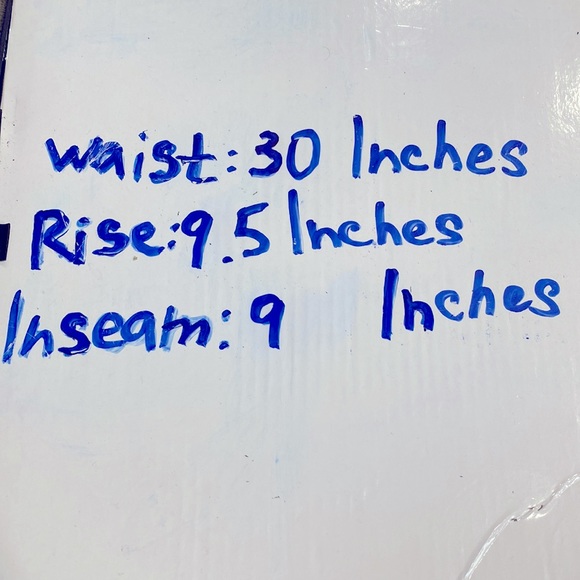 waist: 30 Inches
Rise: 9.5 Inches
Inseam: 9 Inches